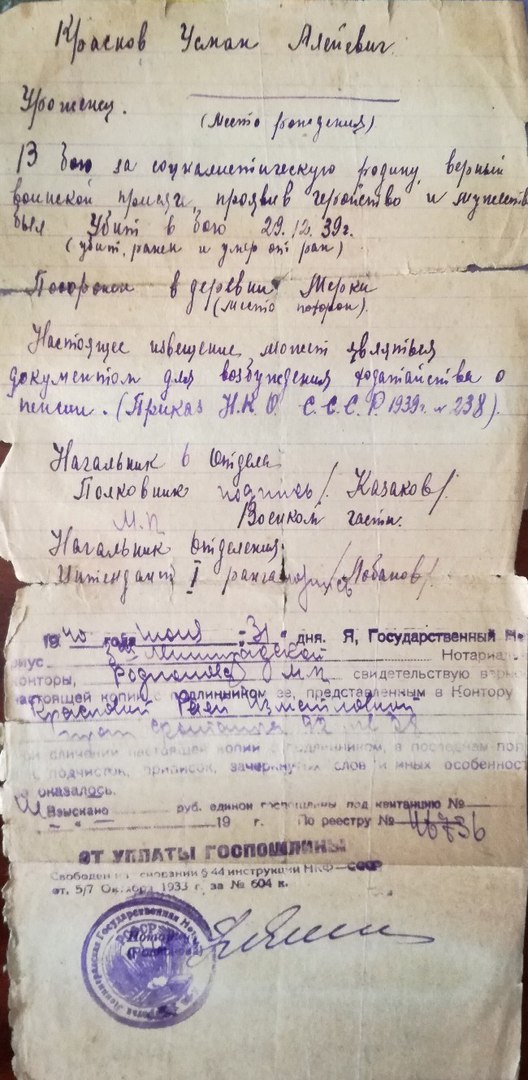 Красков Усман Алеевич.
Уроженец.
(место рождения)
В бою за социалистическую родину, верный
воинской присяги, проявив геройство и мужеств
был Убит в бою 29.12.39г.
(убит, ранен и умер от ран)
Похоронен в деревни Мерки
(место похорон).
Настоящее извещение, может являться
документом для возбуждения ходатайства о
пенсии. (Приказ Н.К.О. С.С.С.Р. 1939г. № 238).
Начальник 6 отдела
Полковник подпись /Казаков/.
М.П. /Военком части.
Начальник отделения
Интендант I ранга подпись /Лобанов/.
1940 года июня "31" дня. Я, Государственный Но
риус Ленинградской Нотариа
конторы, Родионова М.П. свидетельствую верн
настоящей копии с подлинником ее, представленным в Контору
Красковой
при сличении настоящей копии с подлинником, в последнем по
подчисток, приписок, зачеркнутых слов и иных особенност
не оказалось.
Взыскано руб. единой госпошлины под квитанцию №
19 г. По реестру № 46736
ОТ УПЛАТЫ ГОСПОШЛИНЫ
Свободен на основании § 44 инструкции НКФ СССР
от. 5/7 Октября 1933 г. за № 604 к.